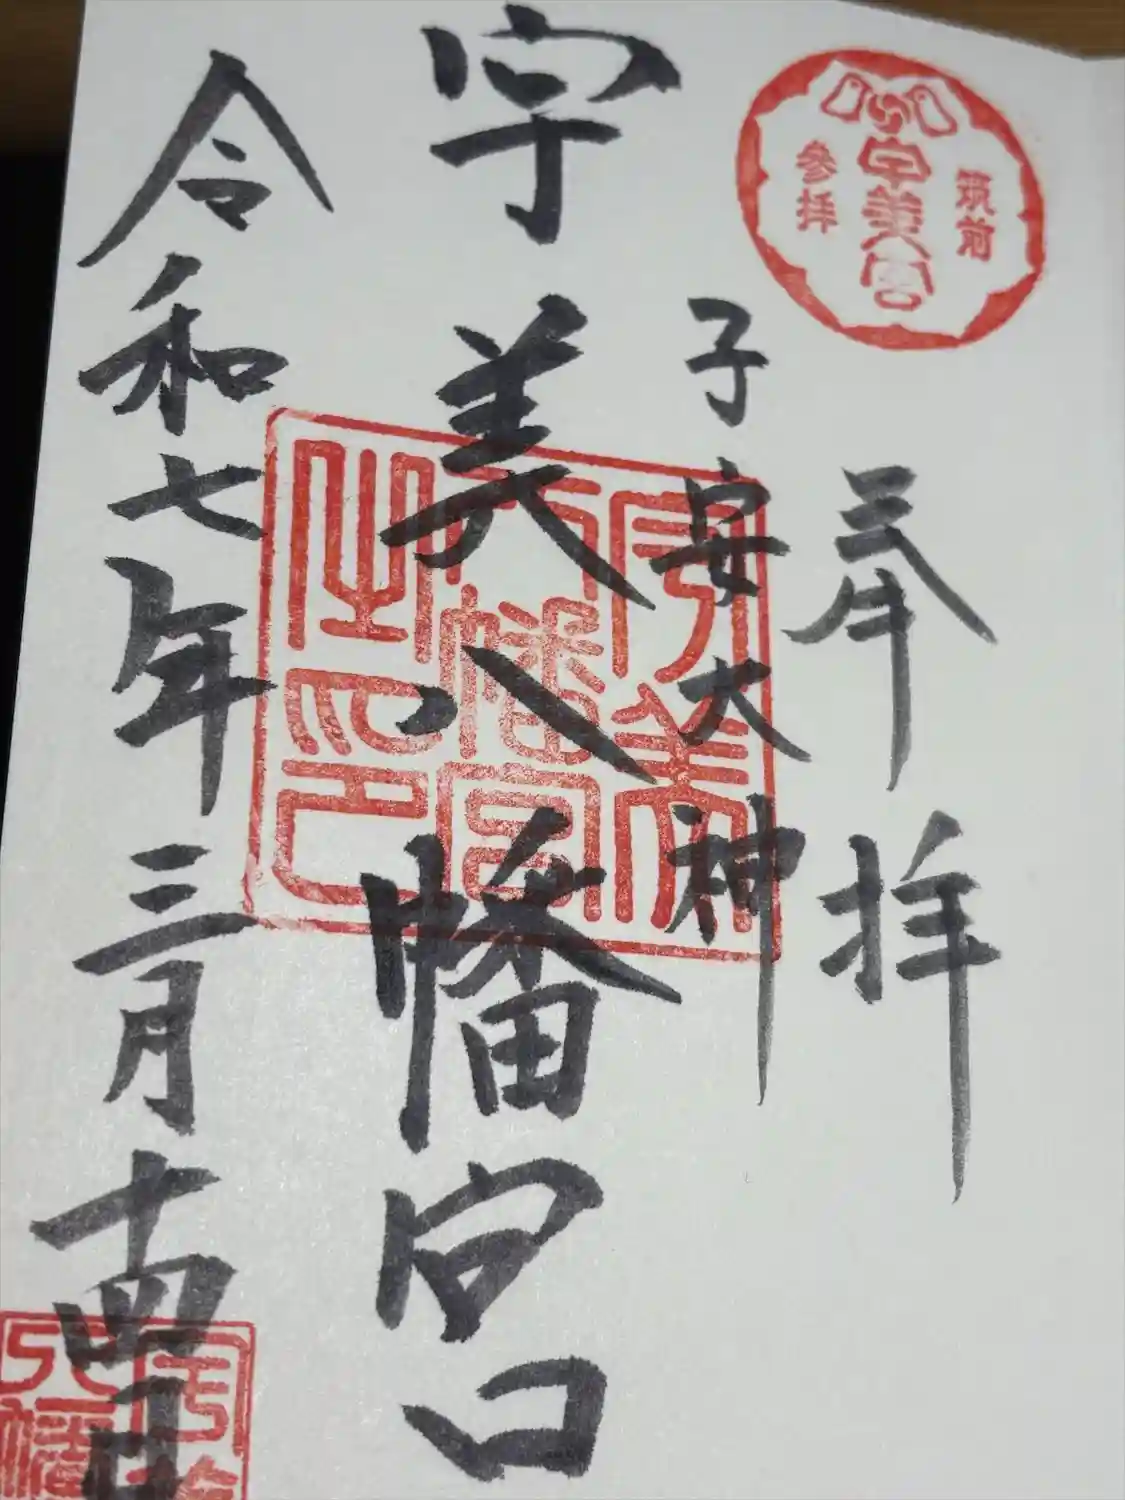 筑前
宇美宮
参拝
奉拝
子安大神
宇美八幡宮
令和七年三月十四日
宇美
八幡宮
之印